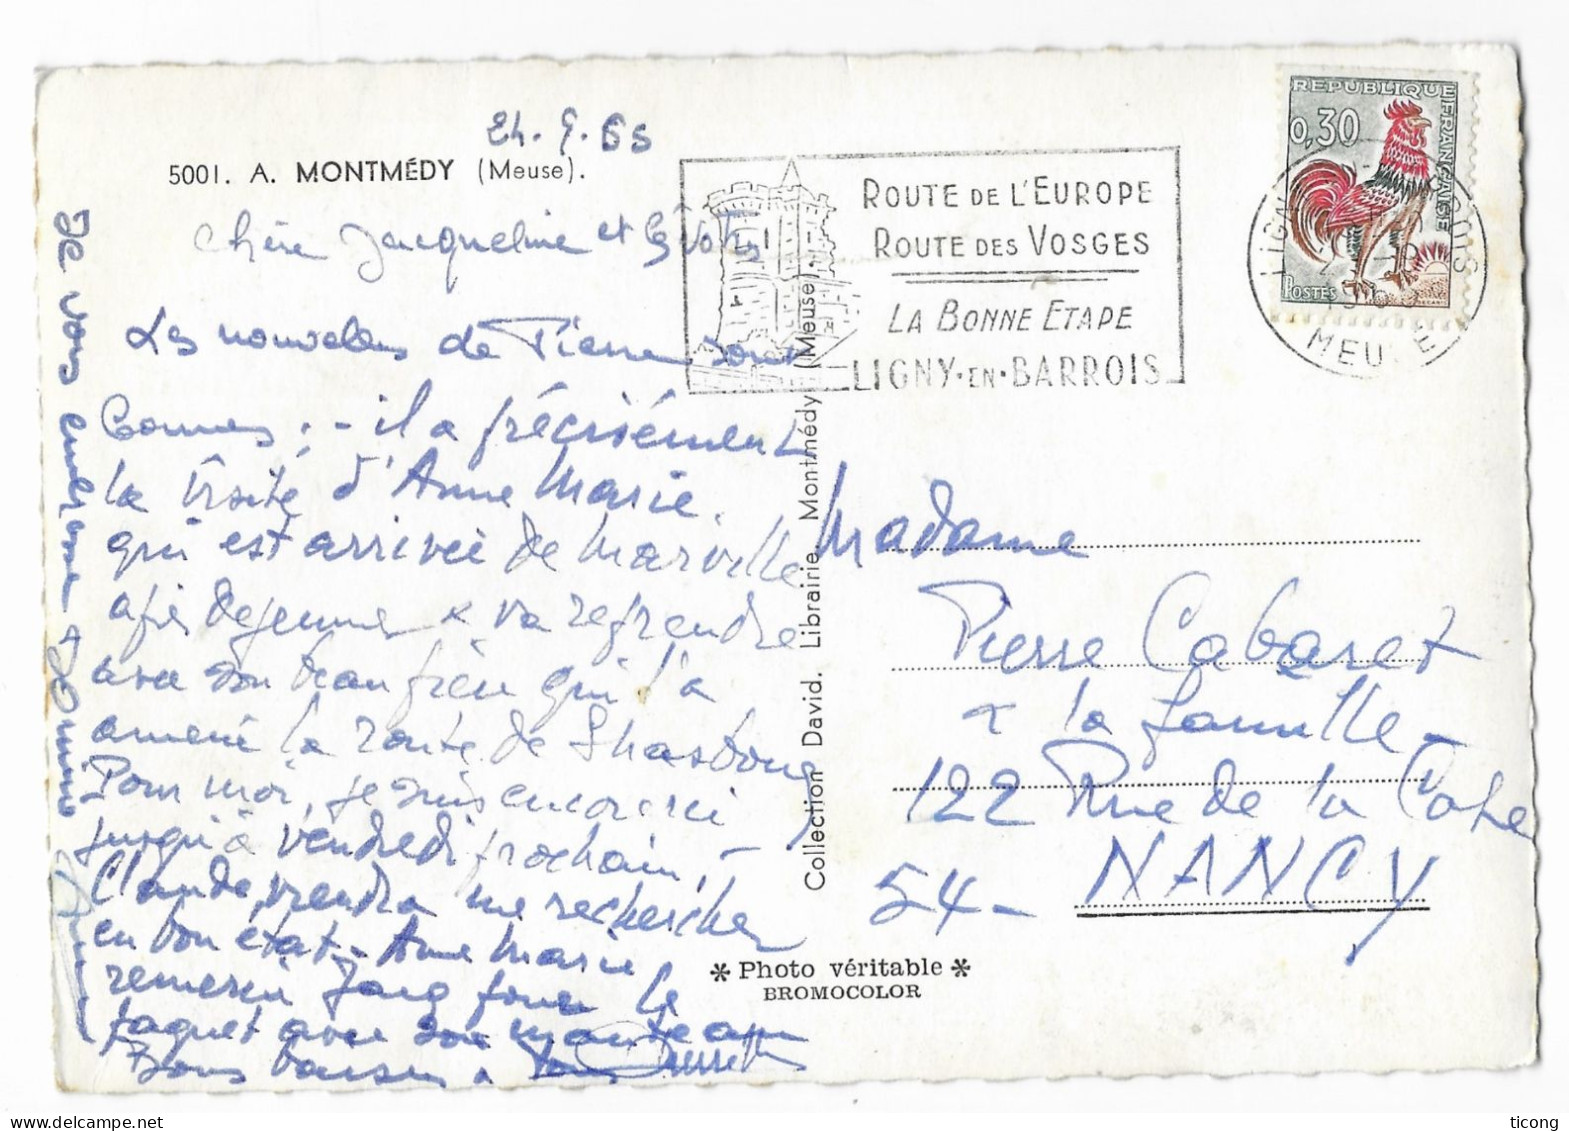 24.9.65
5001. A. MONTMÉDY (Meuse).
Chère Jacqueline et les vôtres
Les nouvelles de Pierre sont
bonnes : - il a précisément
la visite d'Anne Marie.
qui est arrivée de Marville
après dejeuner & va reprendre
avec son beau frère qui l'a
amené la route de Strasbourg
Pour moi, je suis encore ici
jusqu'à vendredi prochain, -
Claude, viendra me rechercher
en bon état - Anne Marie
remercie pour le
paquet avec son manteau
Bons baisers à tous
Je vous embrasse &
ROUTE DE L'EUROPE
ROUTE DES VOSGES
LA BONNE ETAPE
LIGNY-EN-BARROIS
REPUBLIQUE FRANÇAISE
0,30
POSTES
MEUSE
Collection David. Librairie Montmédy (Meuse).
Madame
Pierre Cabaret
& la famille -
122 Rue de la Côte
NANCY
54 -
* Photo véritable *
BROMOCOLOR
ticong